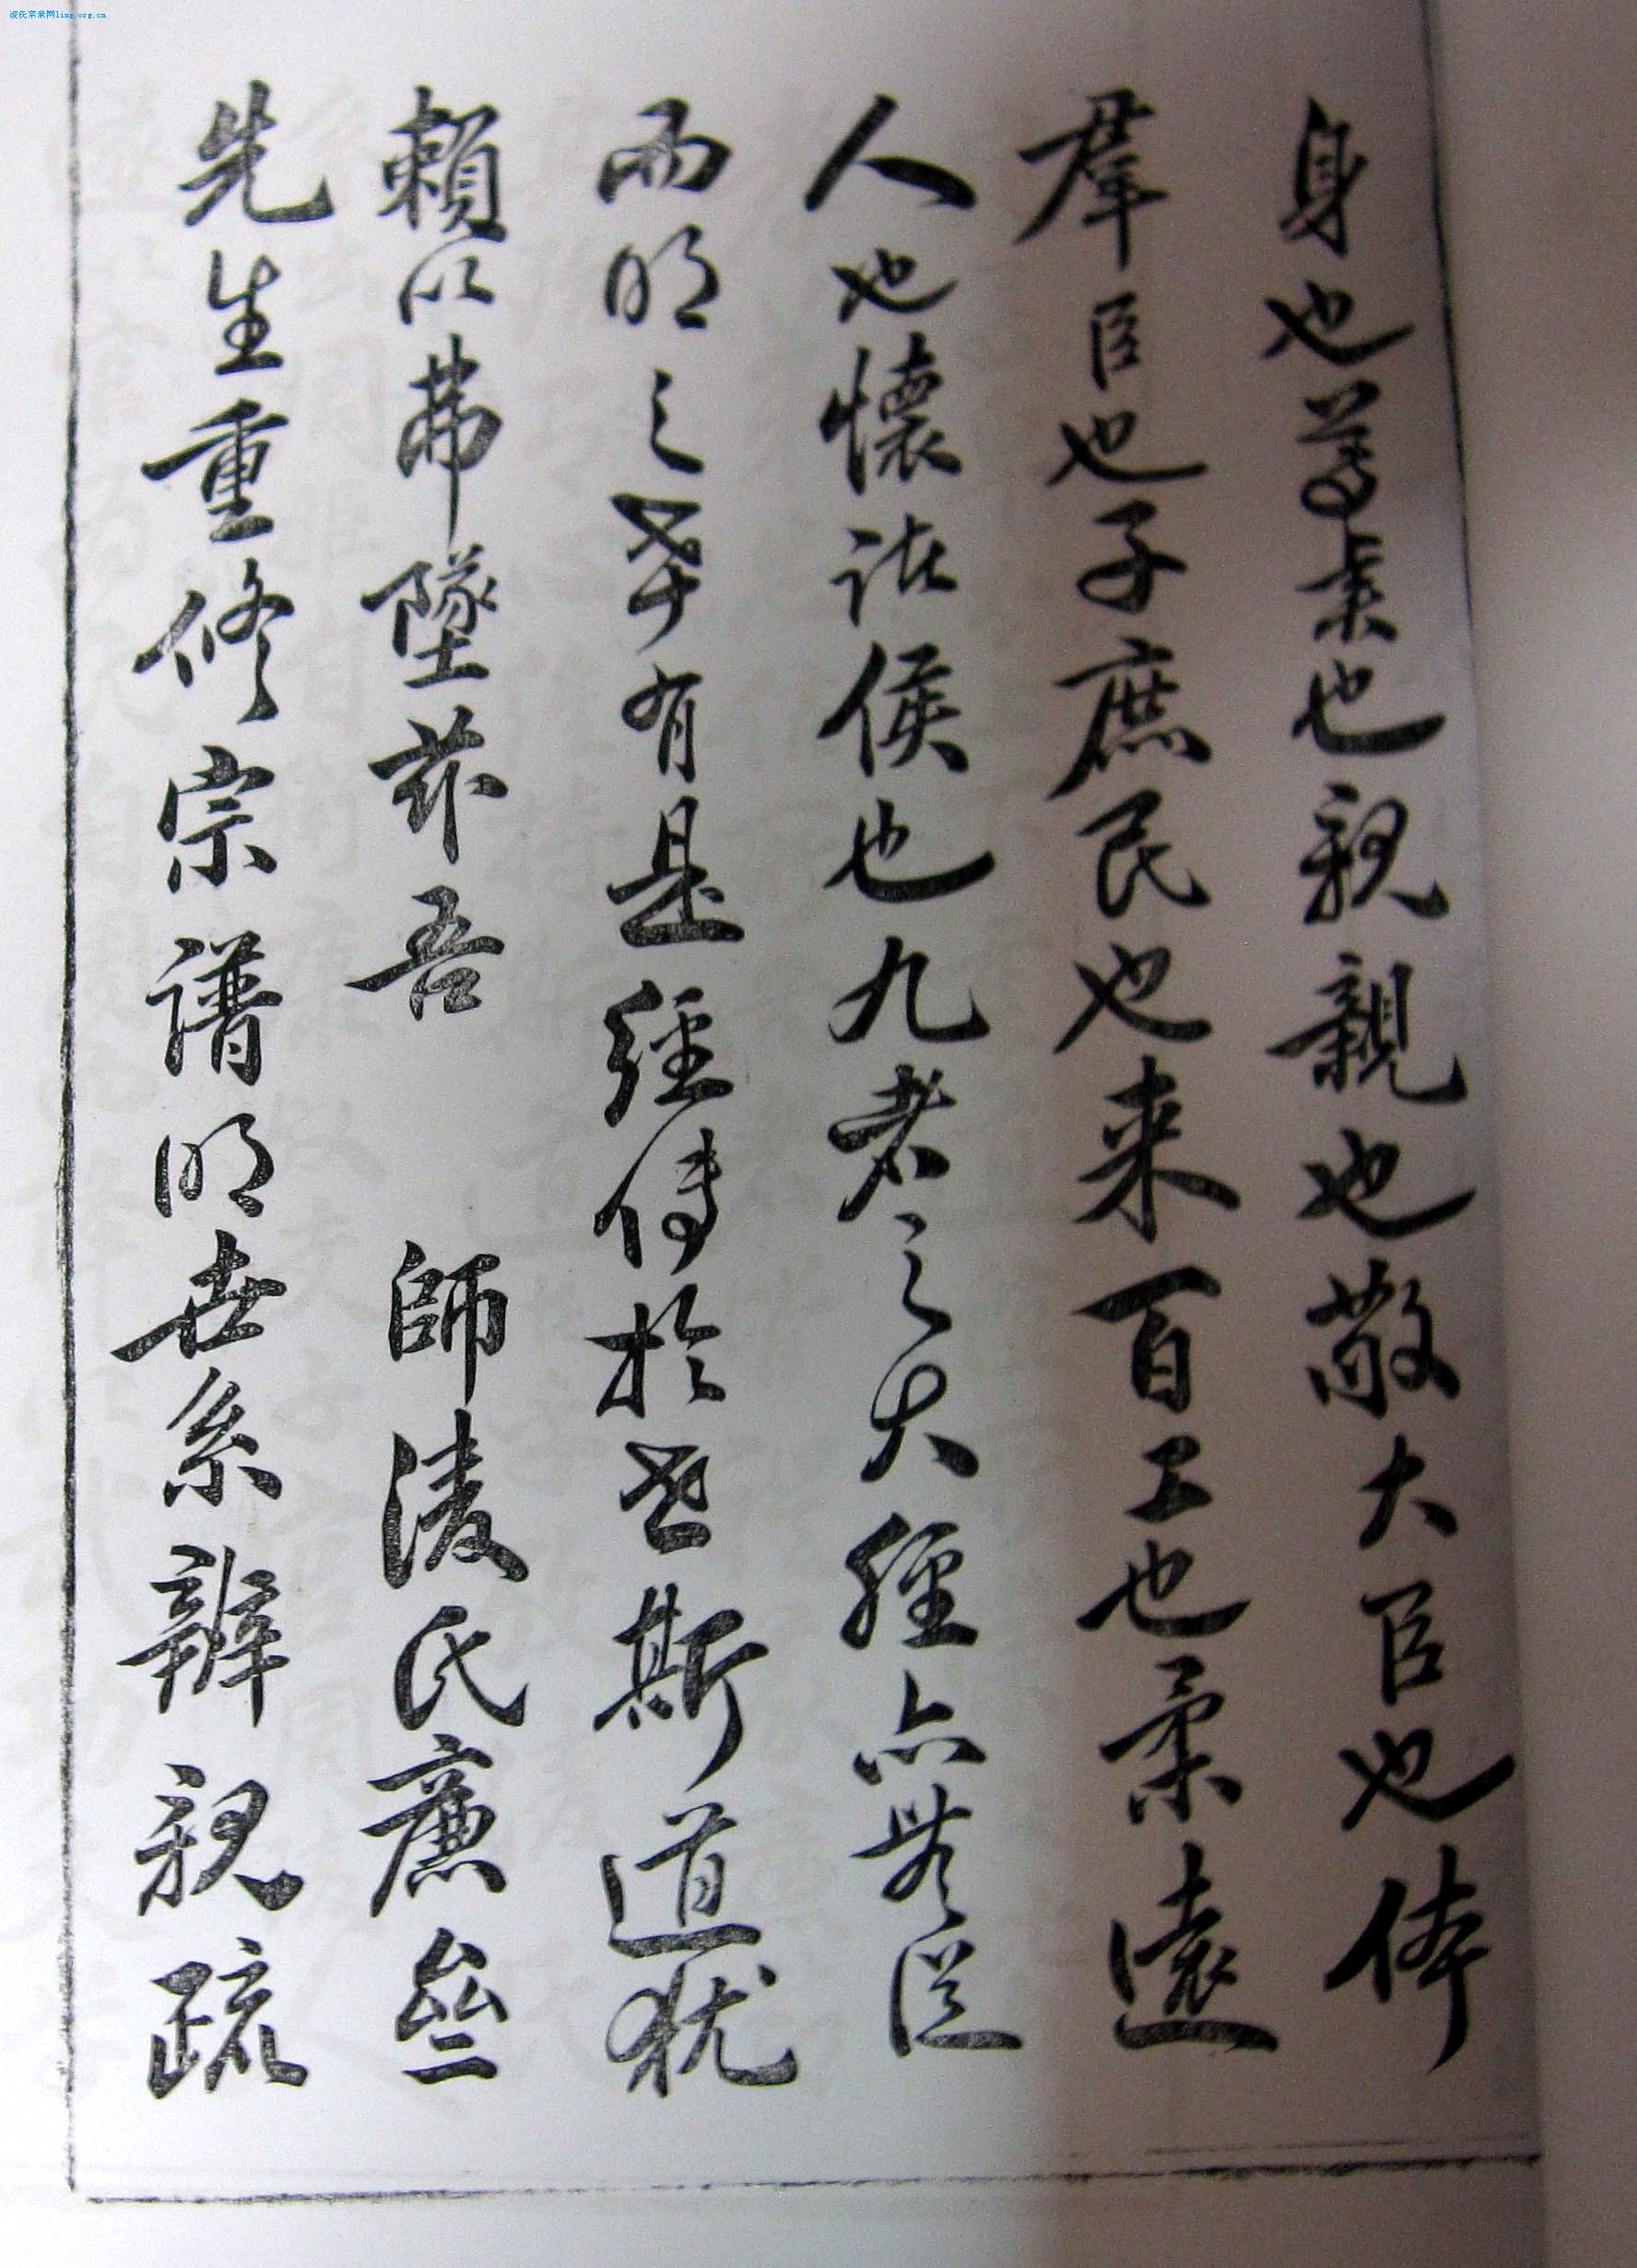 凌氏宗亲网ling.org.cn
身也尊賢也親親也敬大臣也体
羣臣也子庶民也来百工也柔遠
人也懷諸侯也九者之大經亦無從
而明之矣有是經傳於世斯道犹
頼以弗墜兹吾 師凌氏廉叁
先生重修宗譜明世系辨親疏